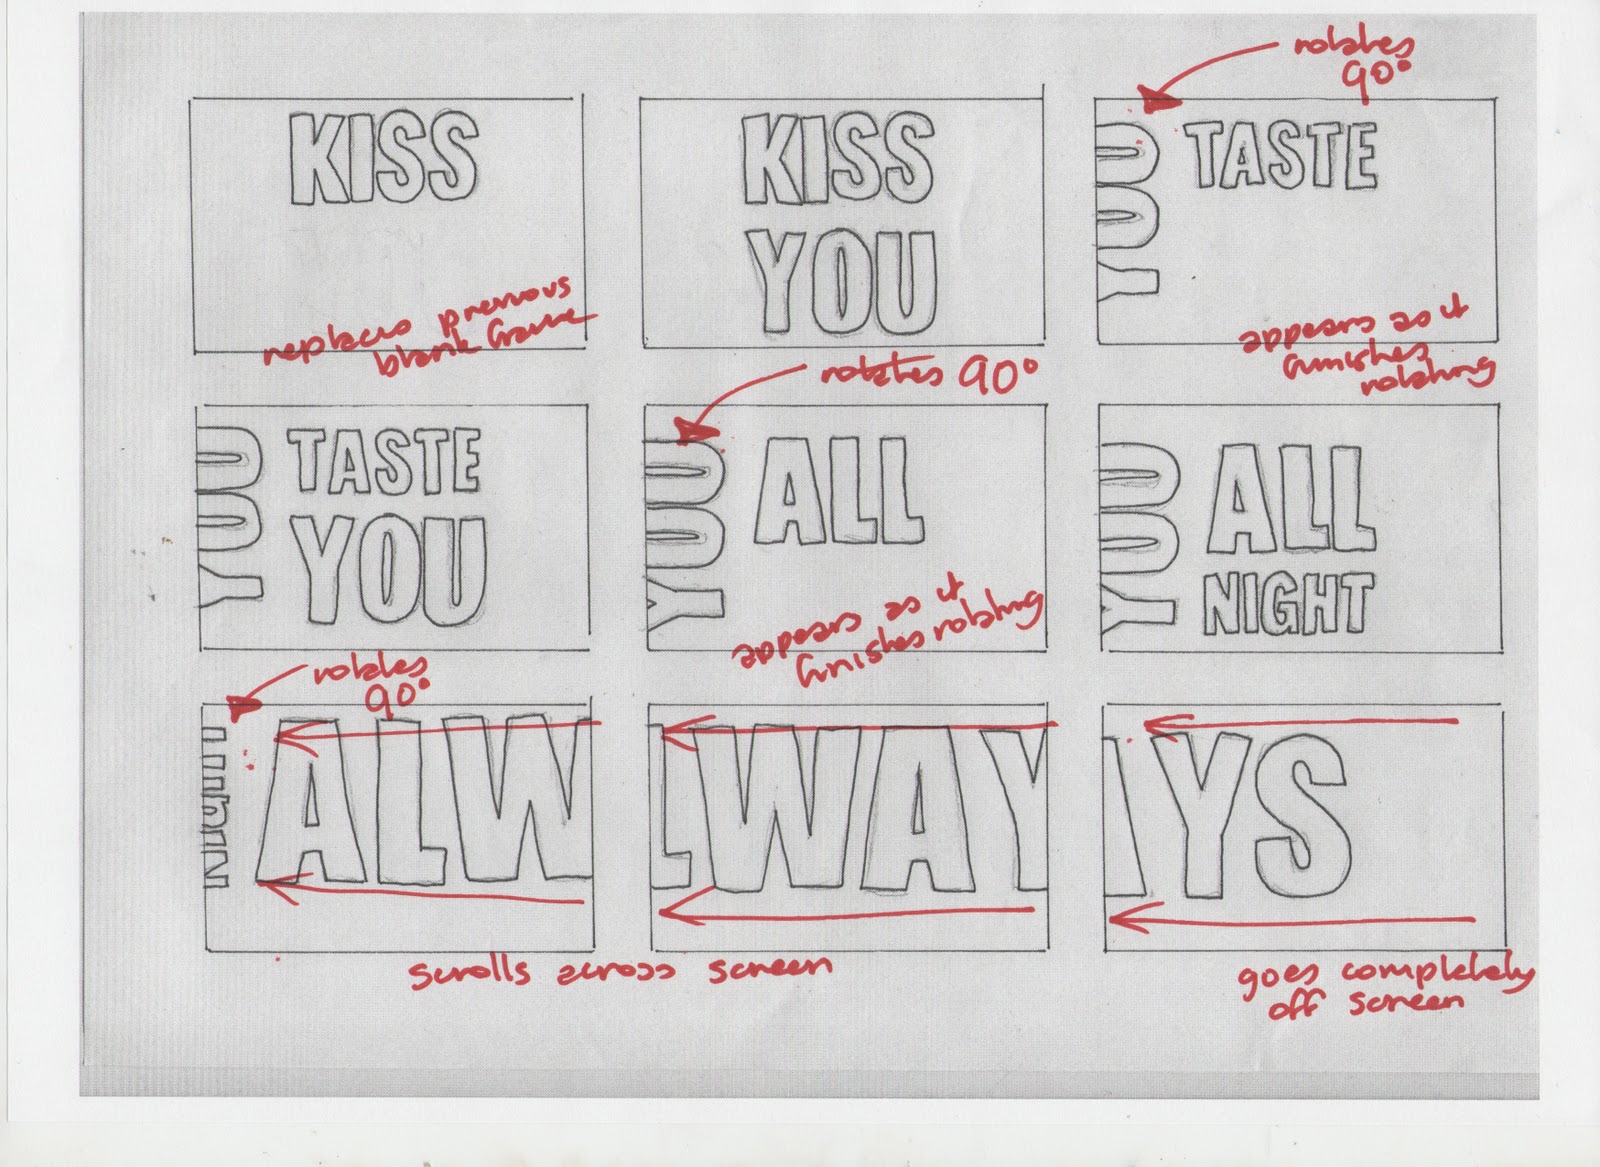 KISS
replaces previous
blank frame
KISS
YOU
rotates
90°
YOU
TASTE
appears as it
finishes
rotating
YOU
TASTE
YOU
rotates 90°
YOU
ALL
appears as it
finishes rotating
YOU
ALL
NIGHT
rotates
90°
NIGHT
ALW
LWAY
AYS
scrolls across screen
goes completely
off screen